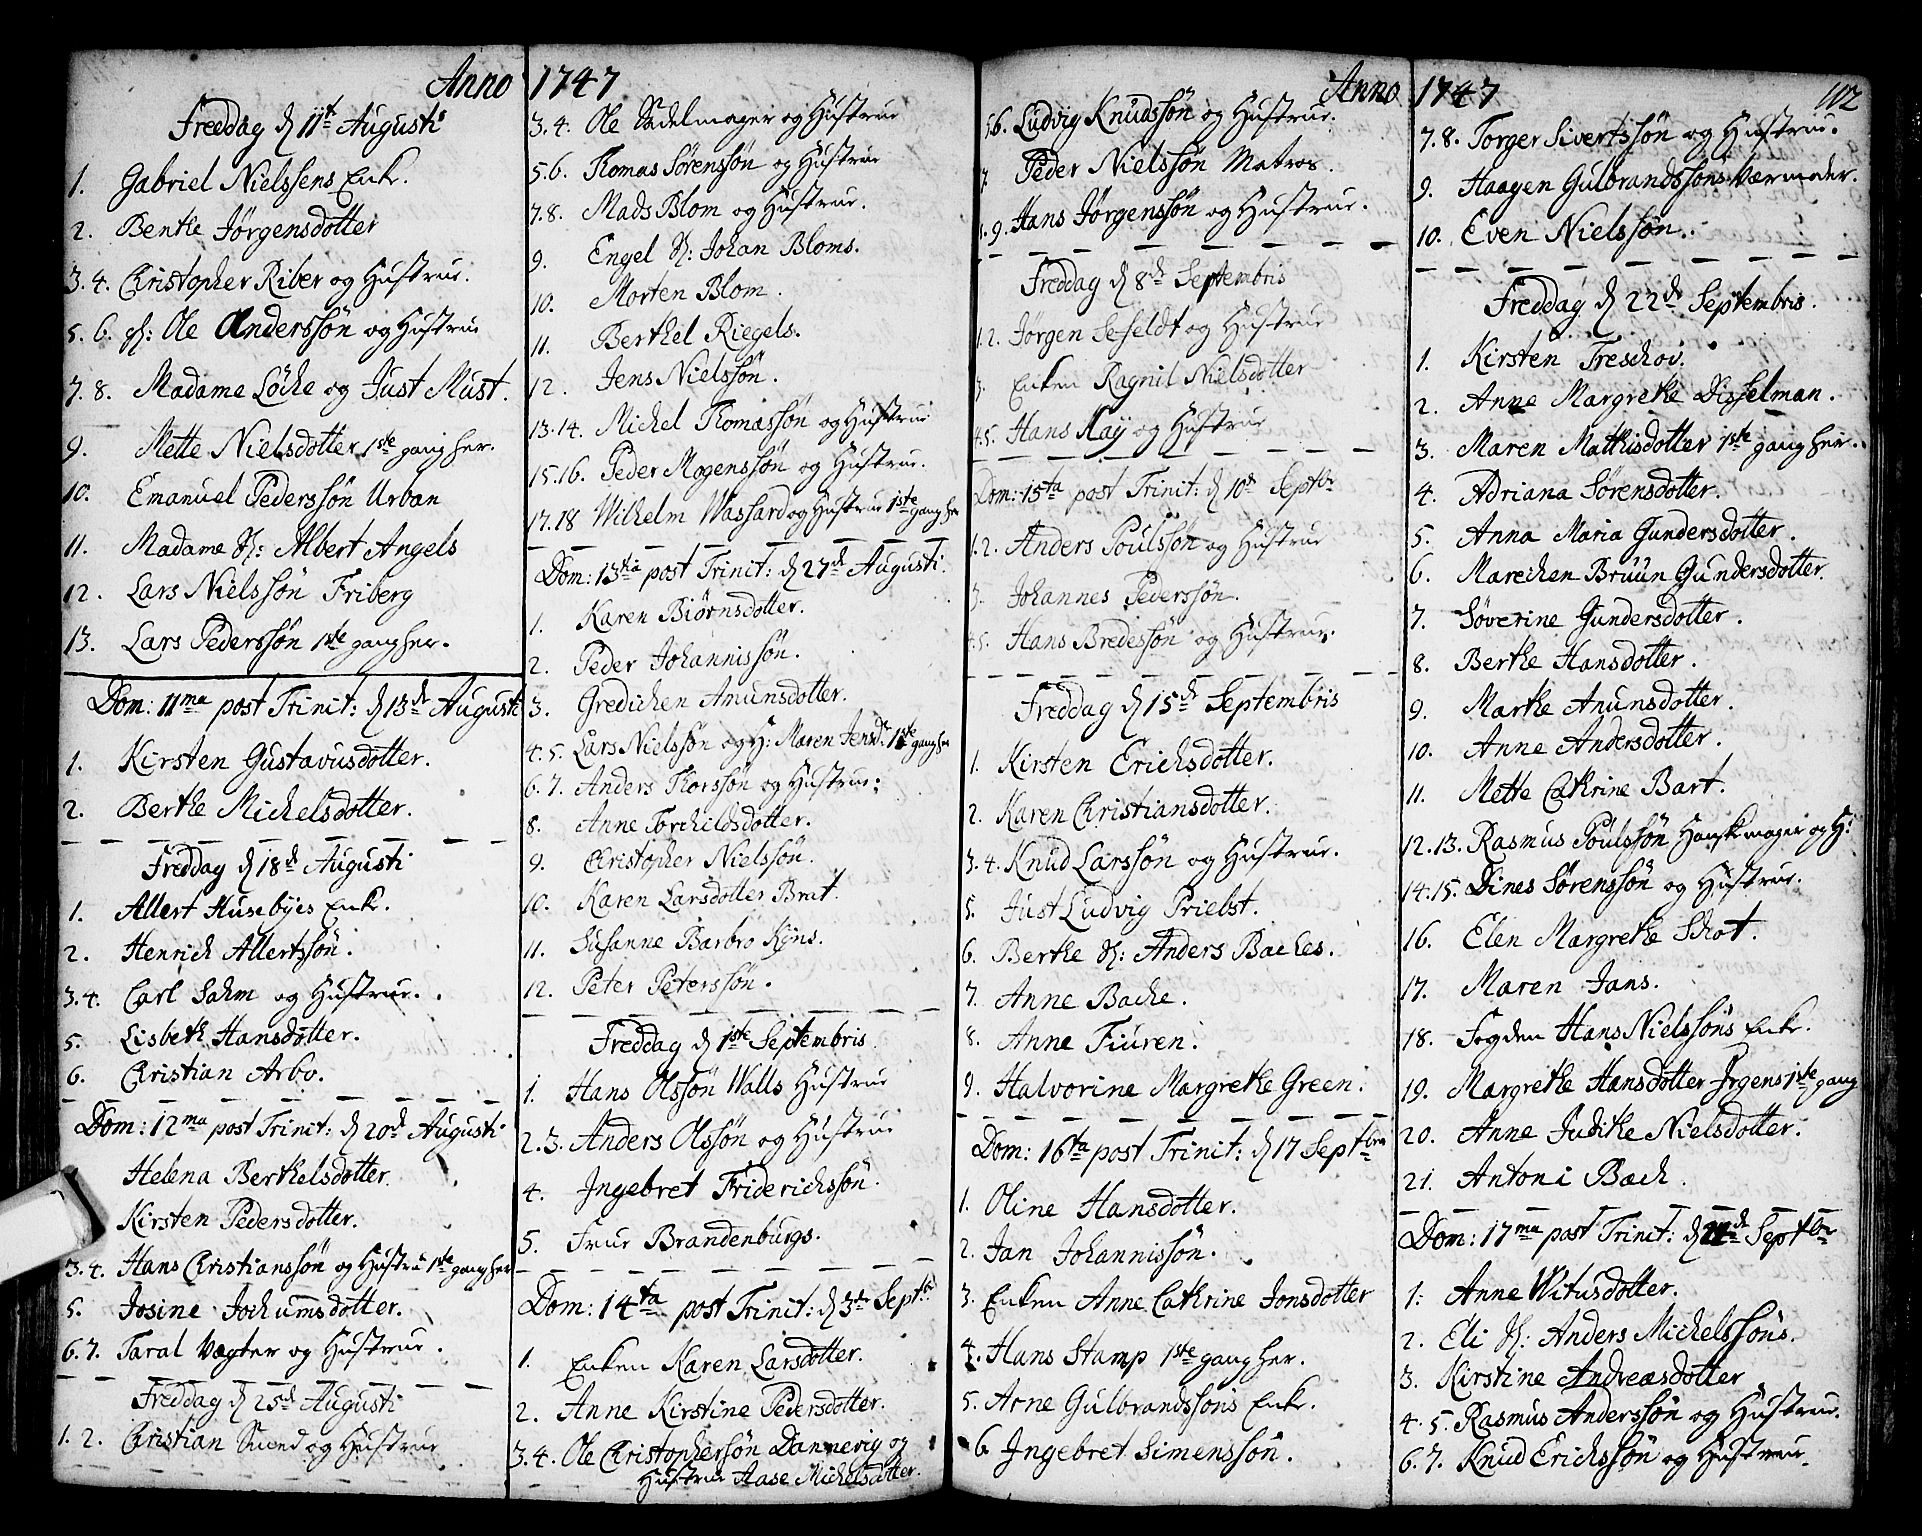 Anno
Freddag d 11te Augusti
1. Gabriel Nielssens Enke.
2. Benthe Jörgensdotter
3. 4. Christopher Riber og Hustrue.
5. 6. Sl: Ole Anderssön og Hustrue
7. 8. Madame Löche og Just Must.
9. Mette Nielsdotter 1ste gang her.
10. Emanuel Pederssön Urban
11. Madame Sl: Albert Angels
12. Lars Nielssön Friberg
13. Lars Pederssön 1ste gang her.
Dom: 11ma post Trinit: d 13de Augusti
1. Kirsten Gustavusdotter.
2. Berthe Michelsdotter.
Freddag d 18de Augusti
1. Allert Husebÿes Enke.
2. Henrich Allertssön.
3. 4. Carl Sahm og Hustrue.
5. Lisbeth Hansdotter.
6. Christian Arbo.
Dom: 12ma post Trinit: d 20de Augusti
Helena Berthelsdotter
Kirsten Pedersdotter.
3. 4. Hans Christianssön og Hustrue 1ste gang her
5. Josine Jochumsdotter.
6. 7. Taral Vægter og Hustrue.
Freddag d 25de Augusti
1. 2. Christian Svend og Hustrue
1747
3. 4. Ole Sadelmager og Hustrue
5 6. Thomas Sörenssön og Hustrue
7. 8. Mads Blom og Hustrue.
9. Engel Sl: Johan Bloms.
10. Morten Blom.
11. Berthel Riegels.
12. Jens Nielssön.
13. 14. Michel Thomassön og Hustrue
15. 16. Peder Mogenssön og Hustrue.
17. 18 Wilhelm Wassard og Hustrue 1ste gang her
Dom: 13tia post Trinit: d 27de Augusti.
1. Karen Biörnsdotter.
2. Peder Johannissön.
3. Gredichen Anunsdotter.
4. 5. Lars Nielssön og H: Maren Jensd. 1ste gang her
6. 7. Anders Thorssön og Hustrue:
8. Anne Torchildsdotter.
9. Christopher Nielssön.
10. Karen Larsdotter Brat.
11. Susanne Barbro Kÿns.
12. Peter Peterssön.
Freddag d 1ste Septembris
1. Hans Olssön Walls Hustrue
2. 3. Anders Olssön og Hustrue
4. Ingebret Friderichssön.
5. Frue Brandenburgs.
Dom: 14ta post Trinit: d 3de Septbr
1. Enken Karen Larsdotter.
2. Anne Kirstine Pedersdotter.
3. 4. Ole Christopherssön Dannevig og
Hustrue Aase Michelsdotter.
Anno
5 6. Ludvig Knudssön og Hustrue.
7. Peder Nielssön Matros.
8. 9. Hans Jörgenssön og Hustrue.
Freddag d 8de Septembris
1. 2. Jörgen Sefeldt og Hustrue
3. Enken Ragnil Nielsdotter
4. 5. Hans Kaÿ og Hustrue
Dom: 15ta post Trinit: d 10de Septbr
1. 2. Anders Poulssön og Hustrue
3. Johannes Pederssön.
4. 5. Hans Bredessön og Hustrue.
Freddag d 15de Septembris
1. Kirsten Erichsdotter.
2. Karen Christiansdotter.
3. 4. Knud Larssön og Hustrue.
5. Just Ludvig Priebst.
6. Berthe Sl: Anders Baches.
7. Anne Bache.
8. Anne Fiüren.
9. Halvorine Margrethe Green.
Dom: 16ta post Trinit: d 17 Septbris
1. Oline Hansdotter.
2. Jan Johannissön.
3. Enken Anne Cathrine Jonsdotter
4. Hans Stamp 1ste gang her.
5. Arne Gulbrandssöns Enke.
6 Ingebret Simenssön.
1747
112
7. 8. Torger Sivertssön og Hustrue.
9. Haagen Gulbrandssöns Værmoder.
10. Even Nielssön.
Freddag d 22de Septembris.
1. Kirsten Treschov.
2. Anne Margrethe Disselman.
3. Maren Mathisdotter 1ste gang her.
4. Adriana Sörensdotter.
5. Anna Maria Gundersdotter.
6. Marechen Bruun Gundersdotter.
7. Söverine Gundersdotter.
8. Berthe Hansdotter.
9. Marthe Anunsdotter.
10. Anne Andersdotter.
11. Mette Cathrine Bart.
12. 13. Rasmus Poulssön Handskemager og H:
14. 15. Dines Sörenssön og Hustrue.
16. Elen Margrethe Schot.
17. Maren Jans.
18. Fogden Hans Nielssöns Enke.
19. Margrethe Hansdotter Irgens 1ste gang
20. Anne Judithe Nielsdotter.
21. Antoni Bach.
Dom: 17ma post Trinit: d 24de Septbr
1. Anne Witusdotter.
2. Eli Sl: Anders Michelssöns.
3. Kirstine Andreasdotter
4. 5. Rasmus Anderssön og Hustrue.
6. 7. Knud Erichssön og Hustrue.